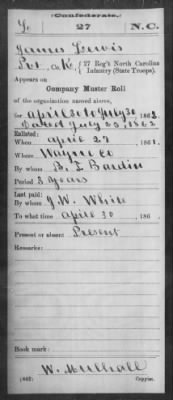 Confederate.
L. 27 N.C.
James Lewis
Pvt, Co. K, 27 Reg't North Carolina
Infantry (State Troops).
Appears on
Company Muster Roll
of the organization named above,
for April 30 to July 30, 1862.
Dated July 25, 1862
Enlisted:
When April 22, 186
Where Wayne Co
By whom B. F. Bardin
Period 3 years
Last paid:
By whom J. W. White
To what time April 30, 186
Present or absent Present
Remarks:
Book mark:
W. Mulhall
(642) Copyist.